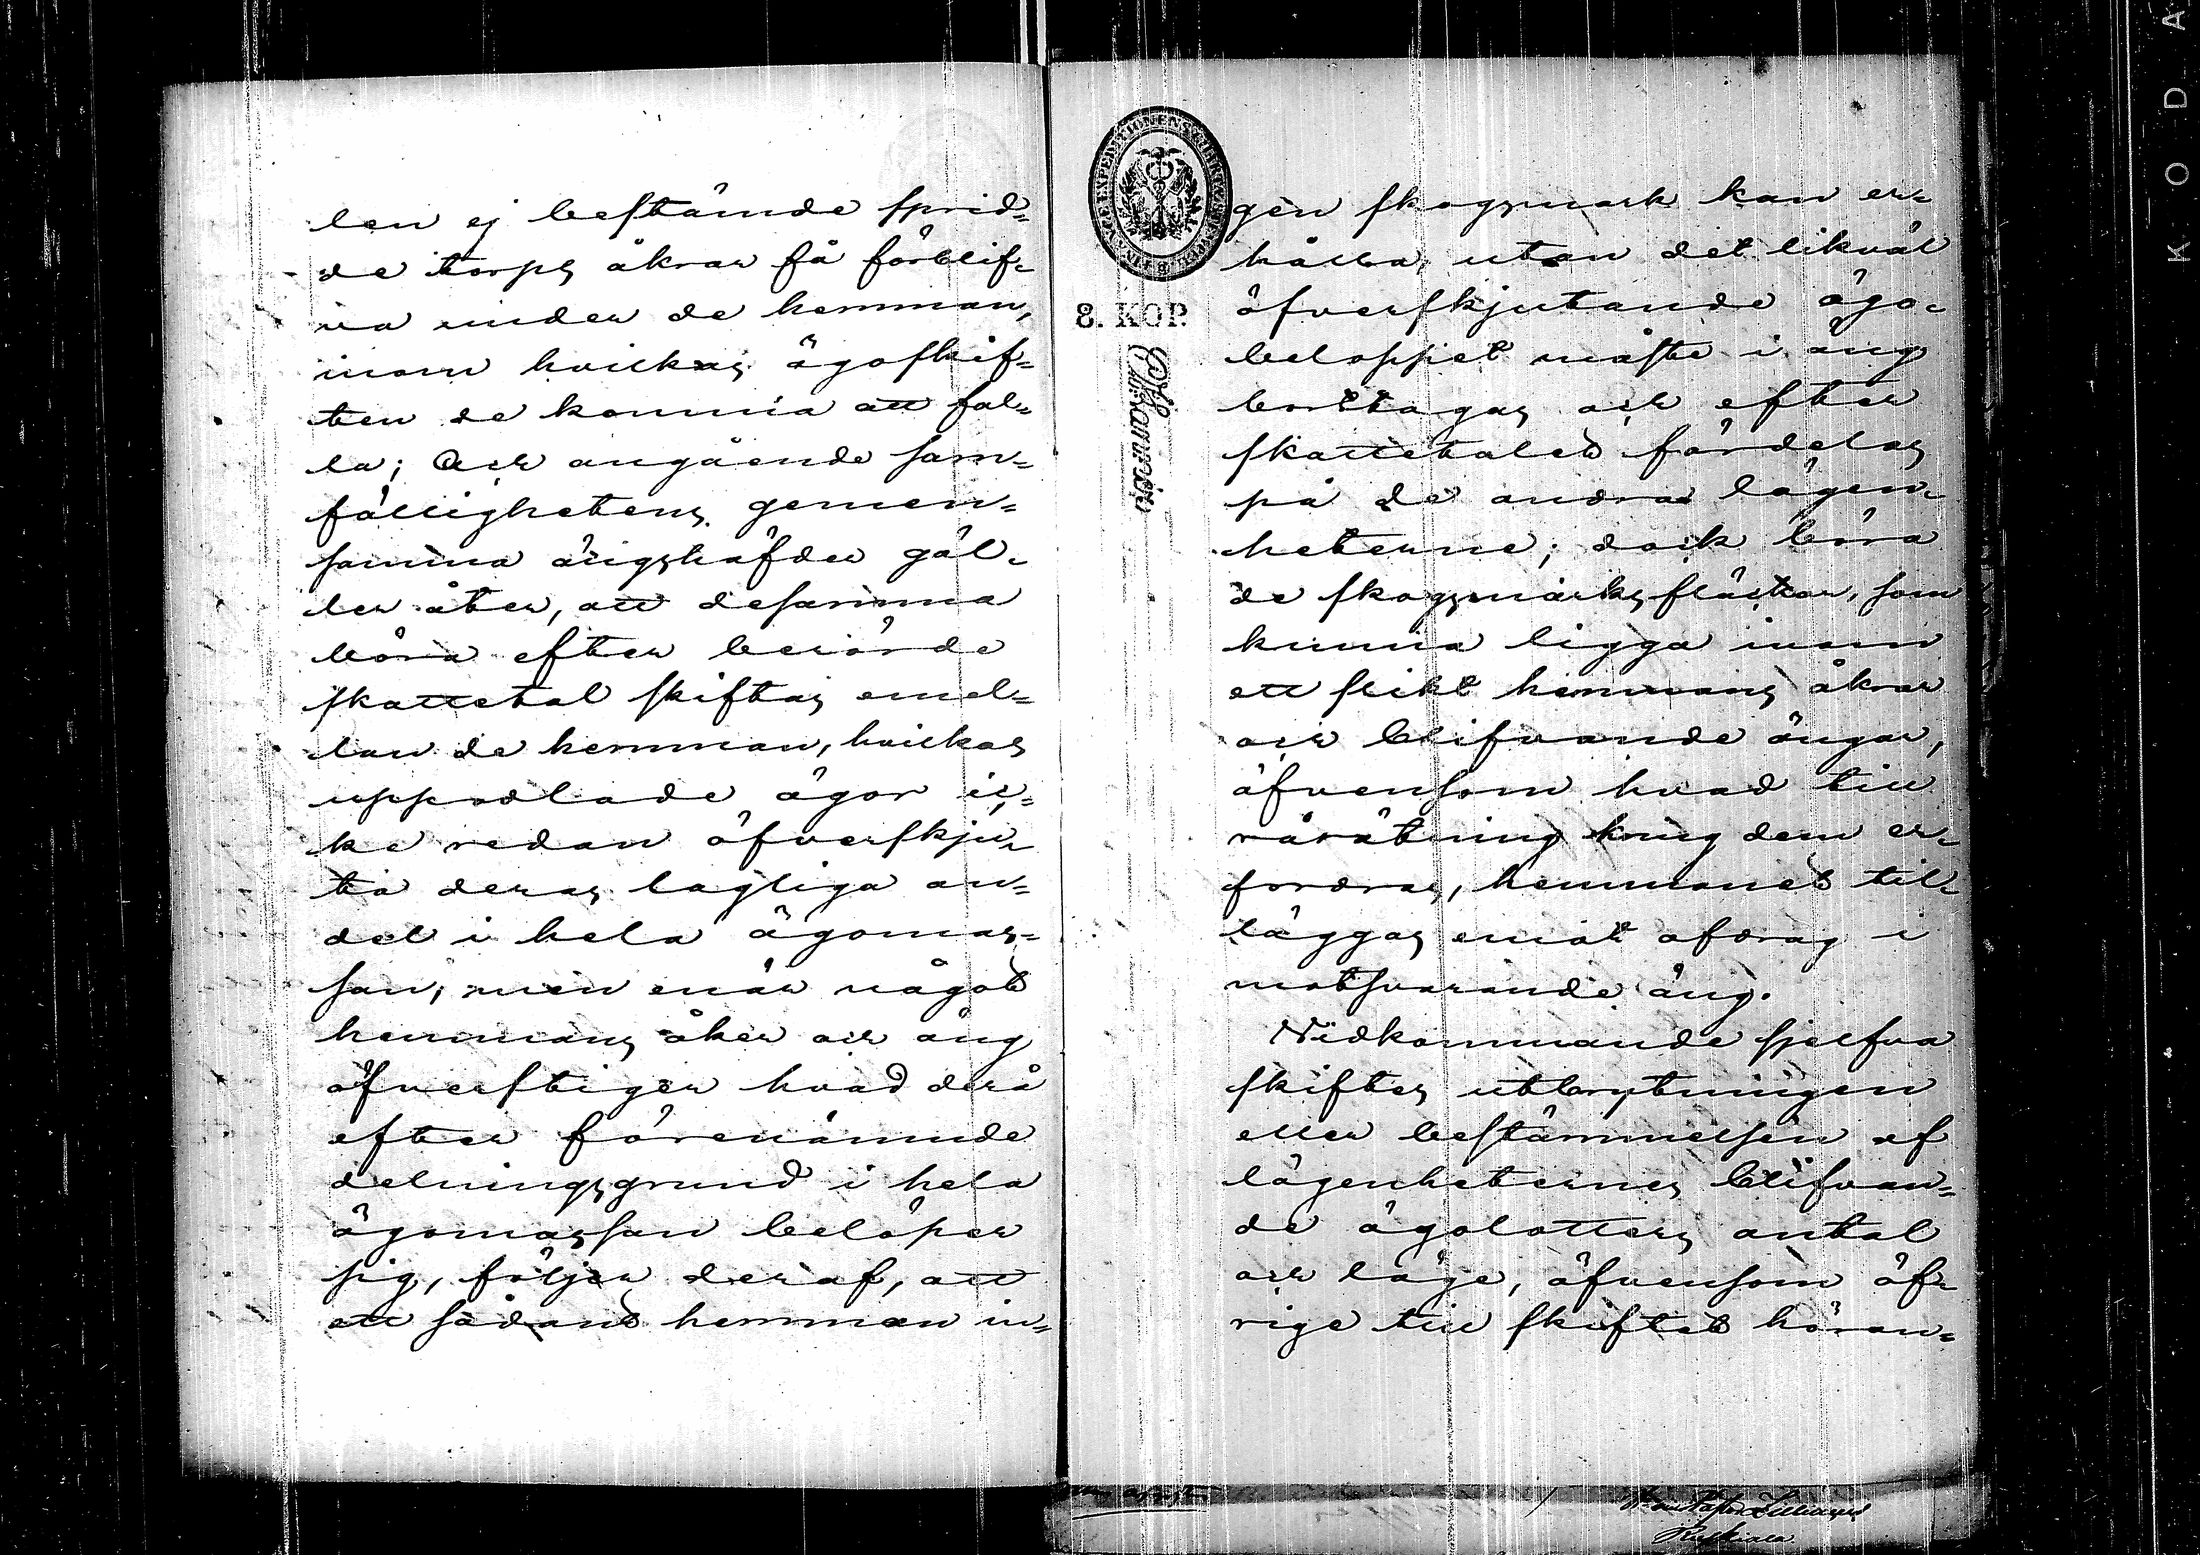 len ej bestämde sprid=
de torps åkrar få förblif=
va under de hemman,
inom hvilkas ägoskif=
ten de komma att fal=
la; Och angående sam=
fällighetens gemen=
samma ängshäfder gäl=
ler åter, att desamma
böra efter berörde
skattetal skiftas emel=
lan de hemman, hvilkas
uppodlade ägor ic=
ke redan öfverskju=
ta deras lagliga an=
del i hela ägomas=
san; men enär något
hemmans åker och äng
öfverstiger hvad derå
efter förenämnde
delningsgrund i hela
ägomassan belöper
sig, följer deraf, att
ett sådant hemman in=
8. KOP.
gen skogsmark kan er=
hålla, utan det likväl
öfverskjutande ägo=
beloppet måste i äng
borttagas och efter
skattetalet fördelas
på de andra lägen=
heterne; dock böra
de skogsmarksfläckar, som
kunna ligga inom
ett slikt hemmans åkrar
och blifvande ängar,
äfvensom hvad till
rårätning kring dem er=
fordras, hemmanet til=
läggas emot afdrag i
motsvarande äng.
Vidkommande sjelfva
skiftes utbrytningen
eller bestämmelsen af
lägenheternes blifvan=
de ägolotters antal
och läge, äfvensom öf=
rige till skiftet höran=
KODA